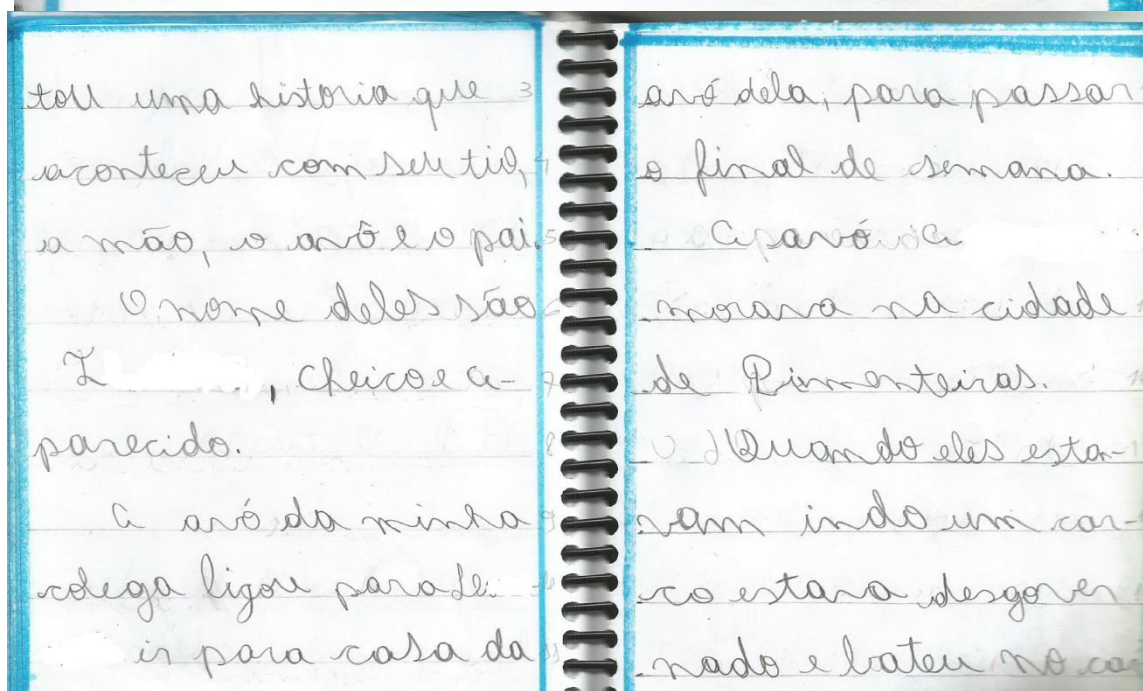 tou uma historia que
aconteceu com seu tio,
a mão, o avô e o pai.
O nome deles são
Z , Cheico e a-
parecido.
A avó da minha
colega ligou para Le.
ir para casa da
avó dela, para passar
o final de semana.
avó a
morava na cidade
de Pimenteiras.
Quando eles esta-
vam indo um car-
ro estava desgover
nado e bateu no ca